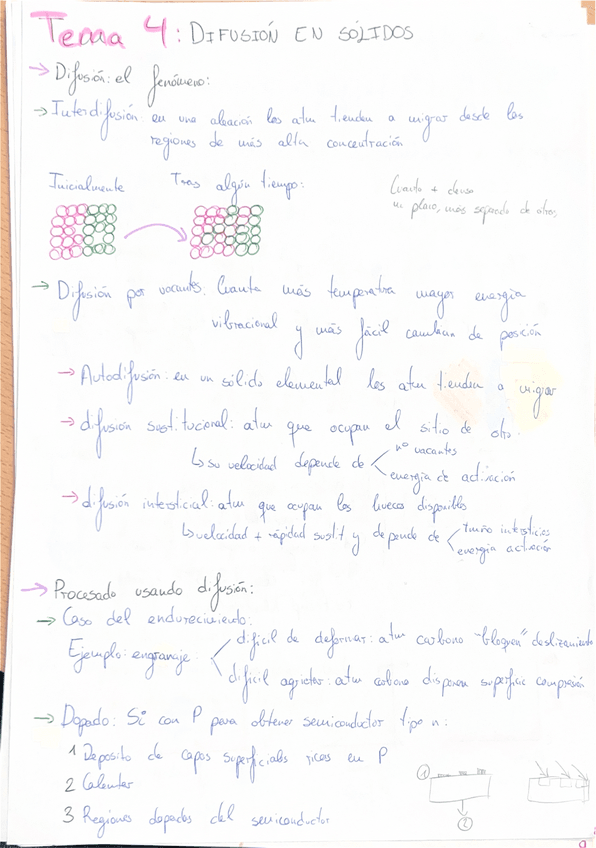 Tema 4: DIFUSIÓN EN SÓLIDOS
→ Difusión: el fenómeno:
→ Interdifusión: en una aleación los atm tienden a migrar desde las
regiones de más alta concentración
Inicialmente Tras algún tiempo:
Cuanto + denso
un plano, más separado de otros
→ Difusión por vacantes: Cuanta más temperatra mayor energia
vibracional y más fácil cambian de posición
→ Autodifusión: en un sólido elemental los atm tienden a migrar
→ difusión sustitucional: atm que ocupan el sitio de otro.
↳ su velocidad depende de
nº vacantes
energia de activación
→ difusión intersticial: atm que ocupan los huecos disponibles
↳ velocidad + rápidad sustit y depende de
tmño intersticios
energia activación
→ Procesado usando difusión:
→ Caso del endurecimiento:
Ejemplo: engranaje:
dificil de deformar: atm carbono "bloquea" deslizamiento
dificil agrietar: atm carbono disponen superficie compresión
→ Dopado: Si con P para obtener semiconductor tipo n:
1 Deposito de capas superficials ricas en P
2 Calentar
3 Regiones dopadas del semiconductor
1
2
9